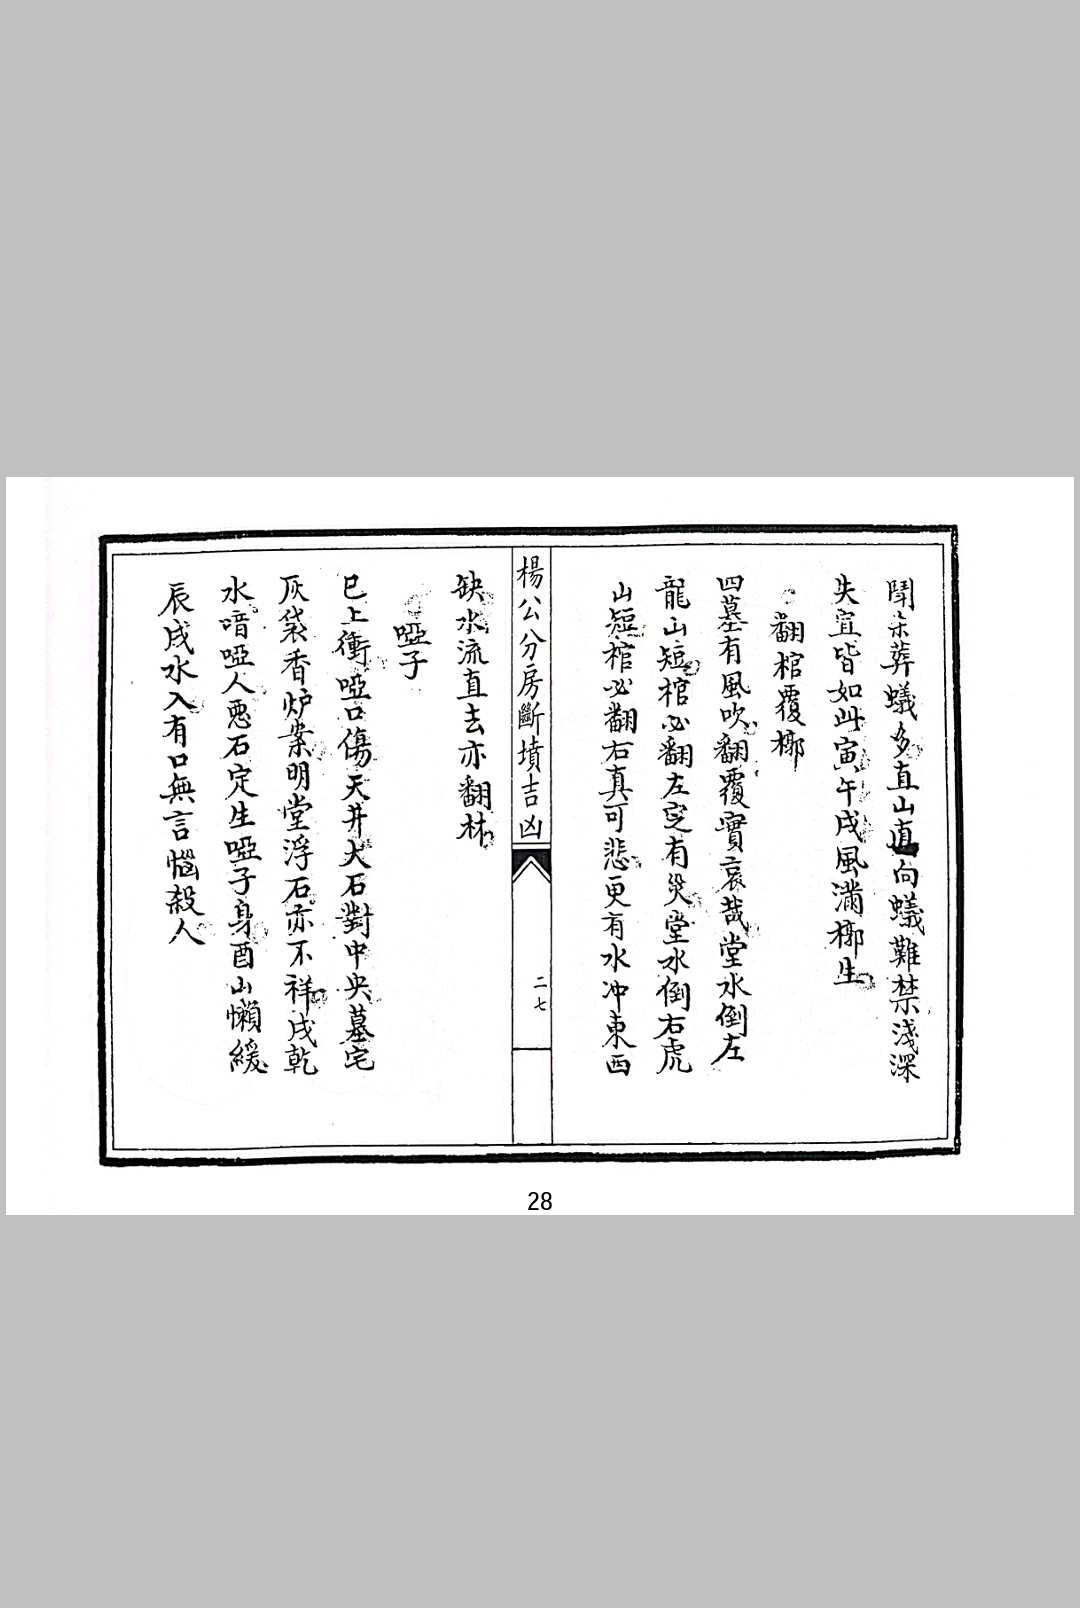 閗朵葬蟻多直山直向蟻難禁淺深
失宜皆如此寅午戌風滿槨生
翻棺覆槨
四墓有風吹翻覆實哀哉堂水倒左
龍山短棺必翻左定有災堂水倒右虎
山短棺必翻右真可悲更有水冲東西
楊公分房斷墳吉凶
二七
缺水流直去亦翻林
啞子
巳上衝啞口傷天井大石對中央墓宅
灰袋香炉案明堂浮石亦不祥戌乾
水喑啞人惡石定生啞子身酉山懶緩
辰戌水入有口無言惱殺人
28